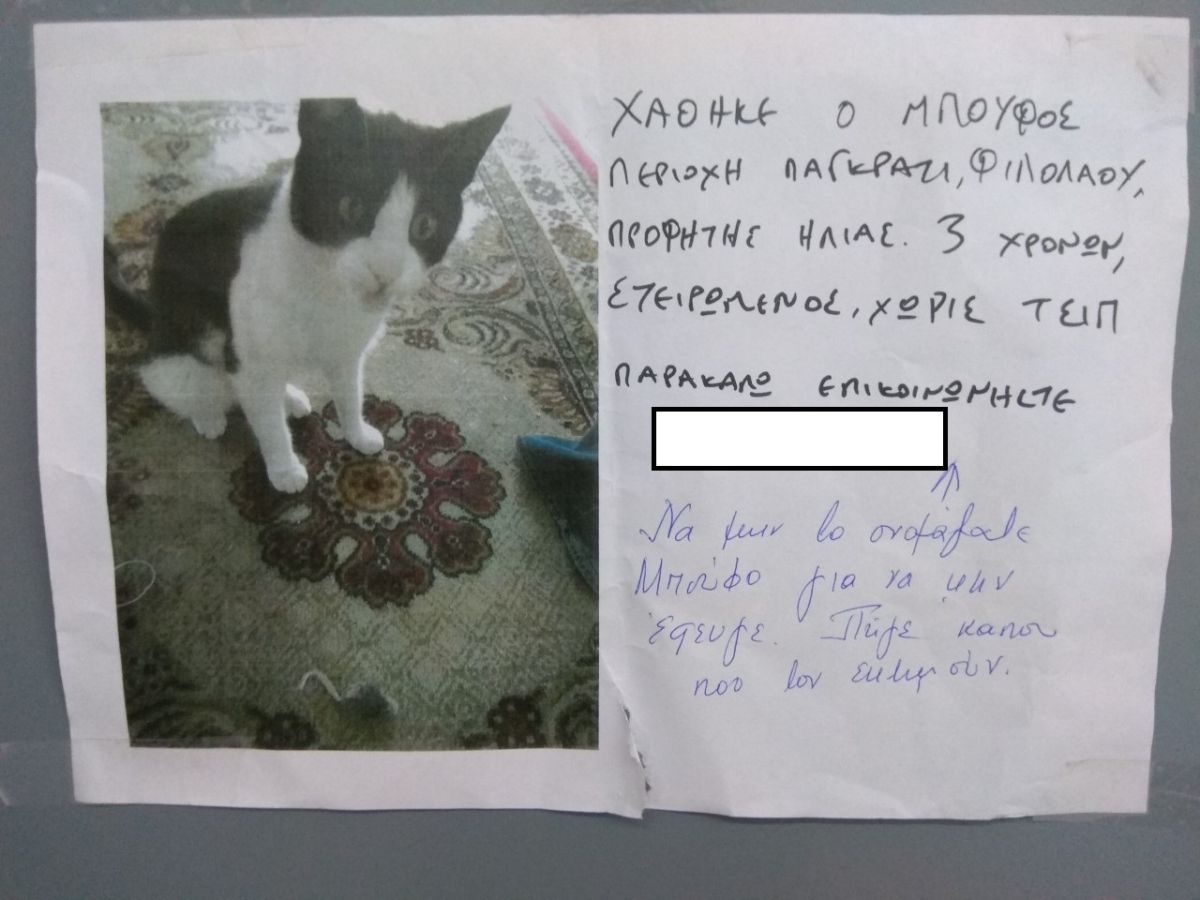 ΧΑΘΗΚΕ Ο ΜΠΟΥΦΟΣ
ΠΕΡΙΟΧΗ ΠΑΓΚΡΑΤΙ, ΦΙΛΟΛΑΟΥ,
ΠΡΟΦΗΤΗΣ ΗΛΙΑΣ. 3 ΧΡΟΝΩΝ,
ΣΤΕΙΡΩΜΕΝΟΣ, ΧΩΡΙΣ ΤΣΙΠ
ΠΑΡΑΚΑΛΩ ΕΠΙΚΟΙΝΩΝΗΣΤΕ
Να μην το ονομάζατε
Μπούφο για να μην
έφευγε. Πήγε καπου
που τον εκτιμούν.